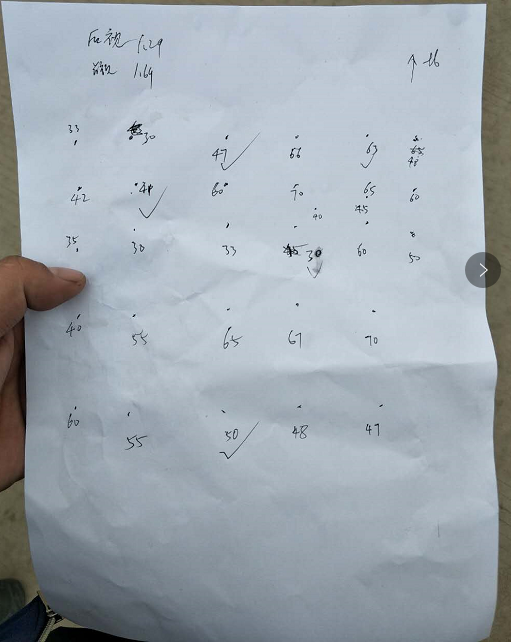 后视 1.29
前视 1.64
↑北
33 30 47 66 63 48
42 60 70 65 60
40 45
35 30 33 30 60 50
40 55 65 67 70
60 55 50 48 47